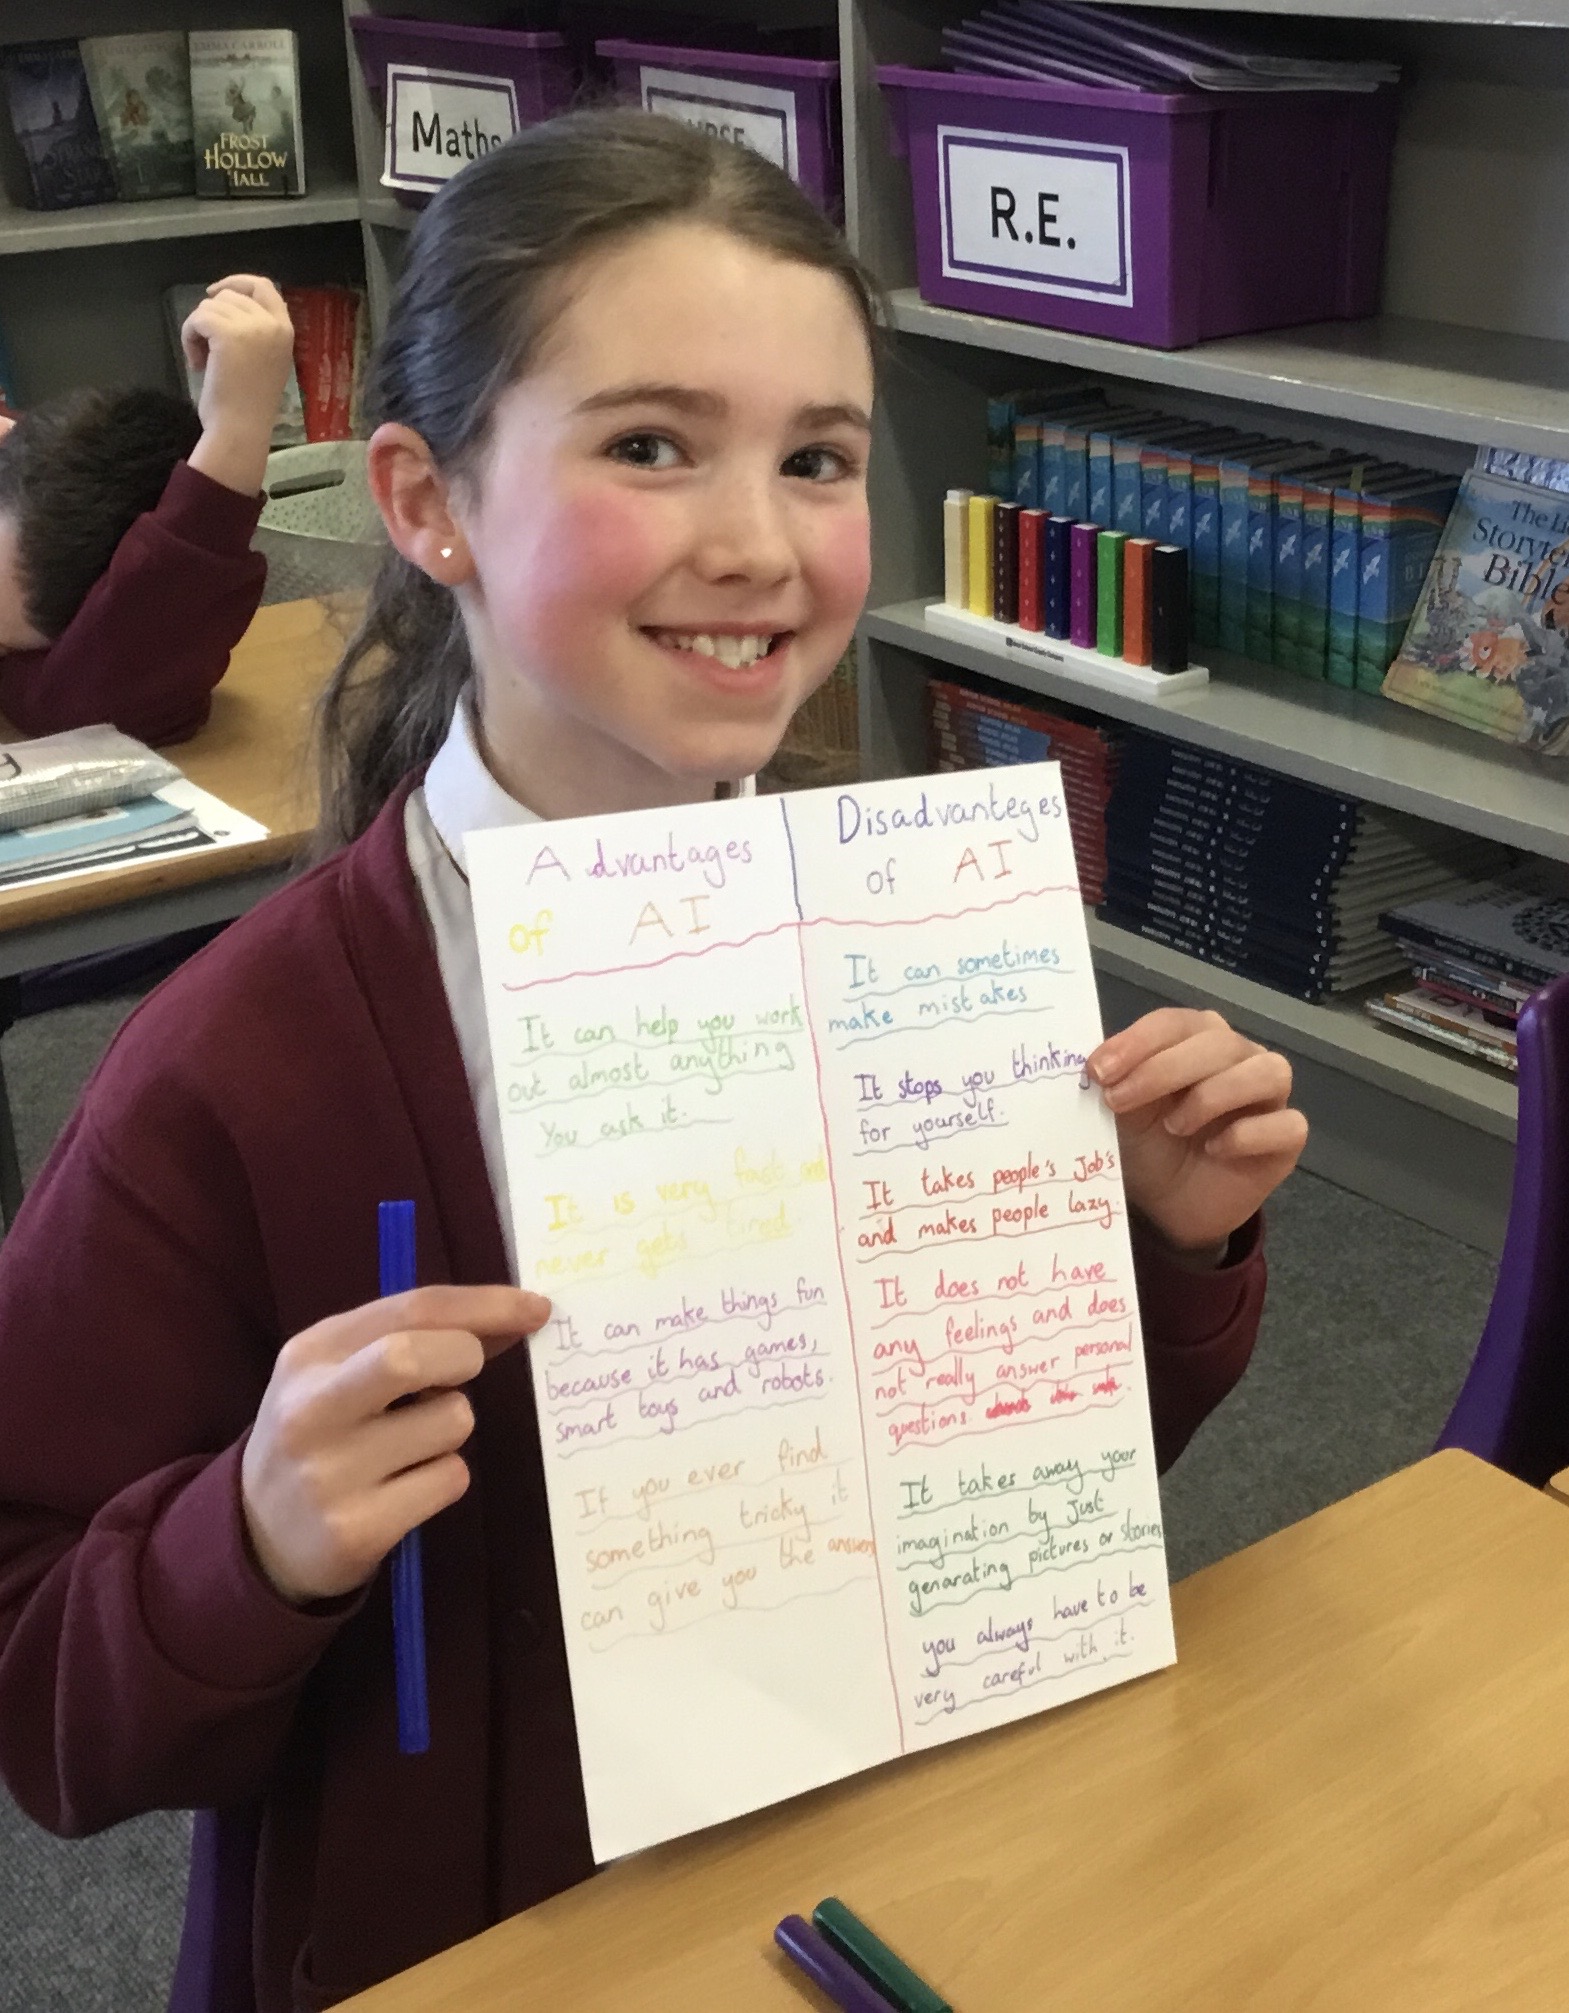 EMMA CARROLL
FROST
HOLLOW
HALL
Maths
R.E.
The
Bible
Advantages
of AI
It can help you work
out almost anything
You ask it.
It is very fast and
never gets tired.
It can make things fun
because it has games,
smart toys and robots.
If you ever find
something tricky it
can give you the answers
Disadvanteges
of AI
It can sometimes
make mistakes
It stops you thinking
for yourself.
It takes people's Job's
and makes people lazy.
It does not have
any feelings and does
not really answer personal
questions.
It takes away your
imagination by Just
genarating pictures or stories
you always have to be
very careful with it.